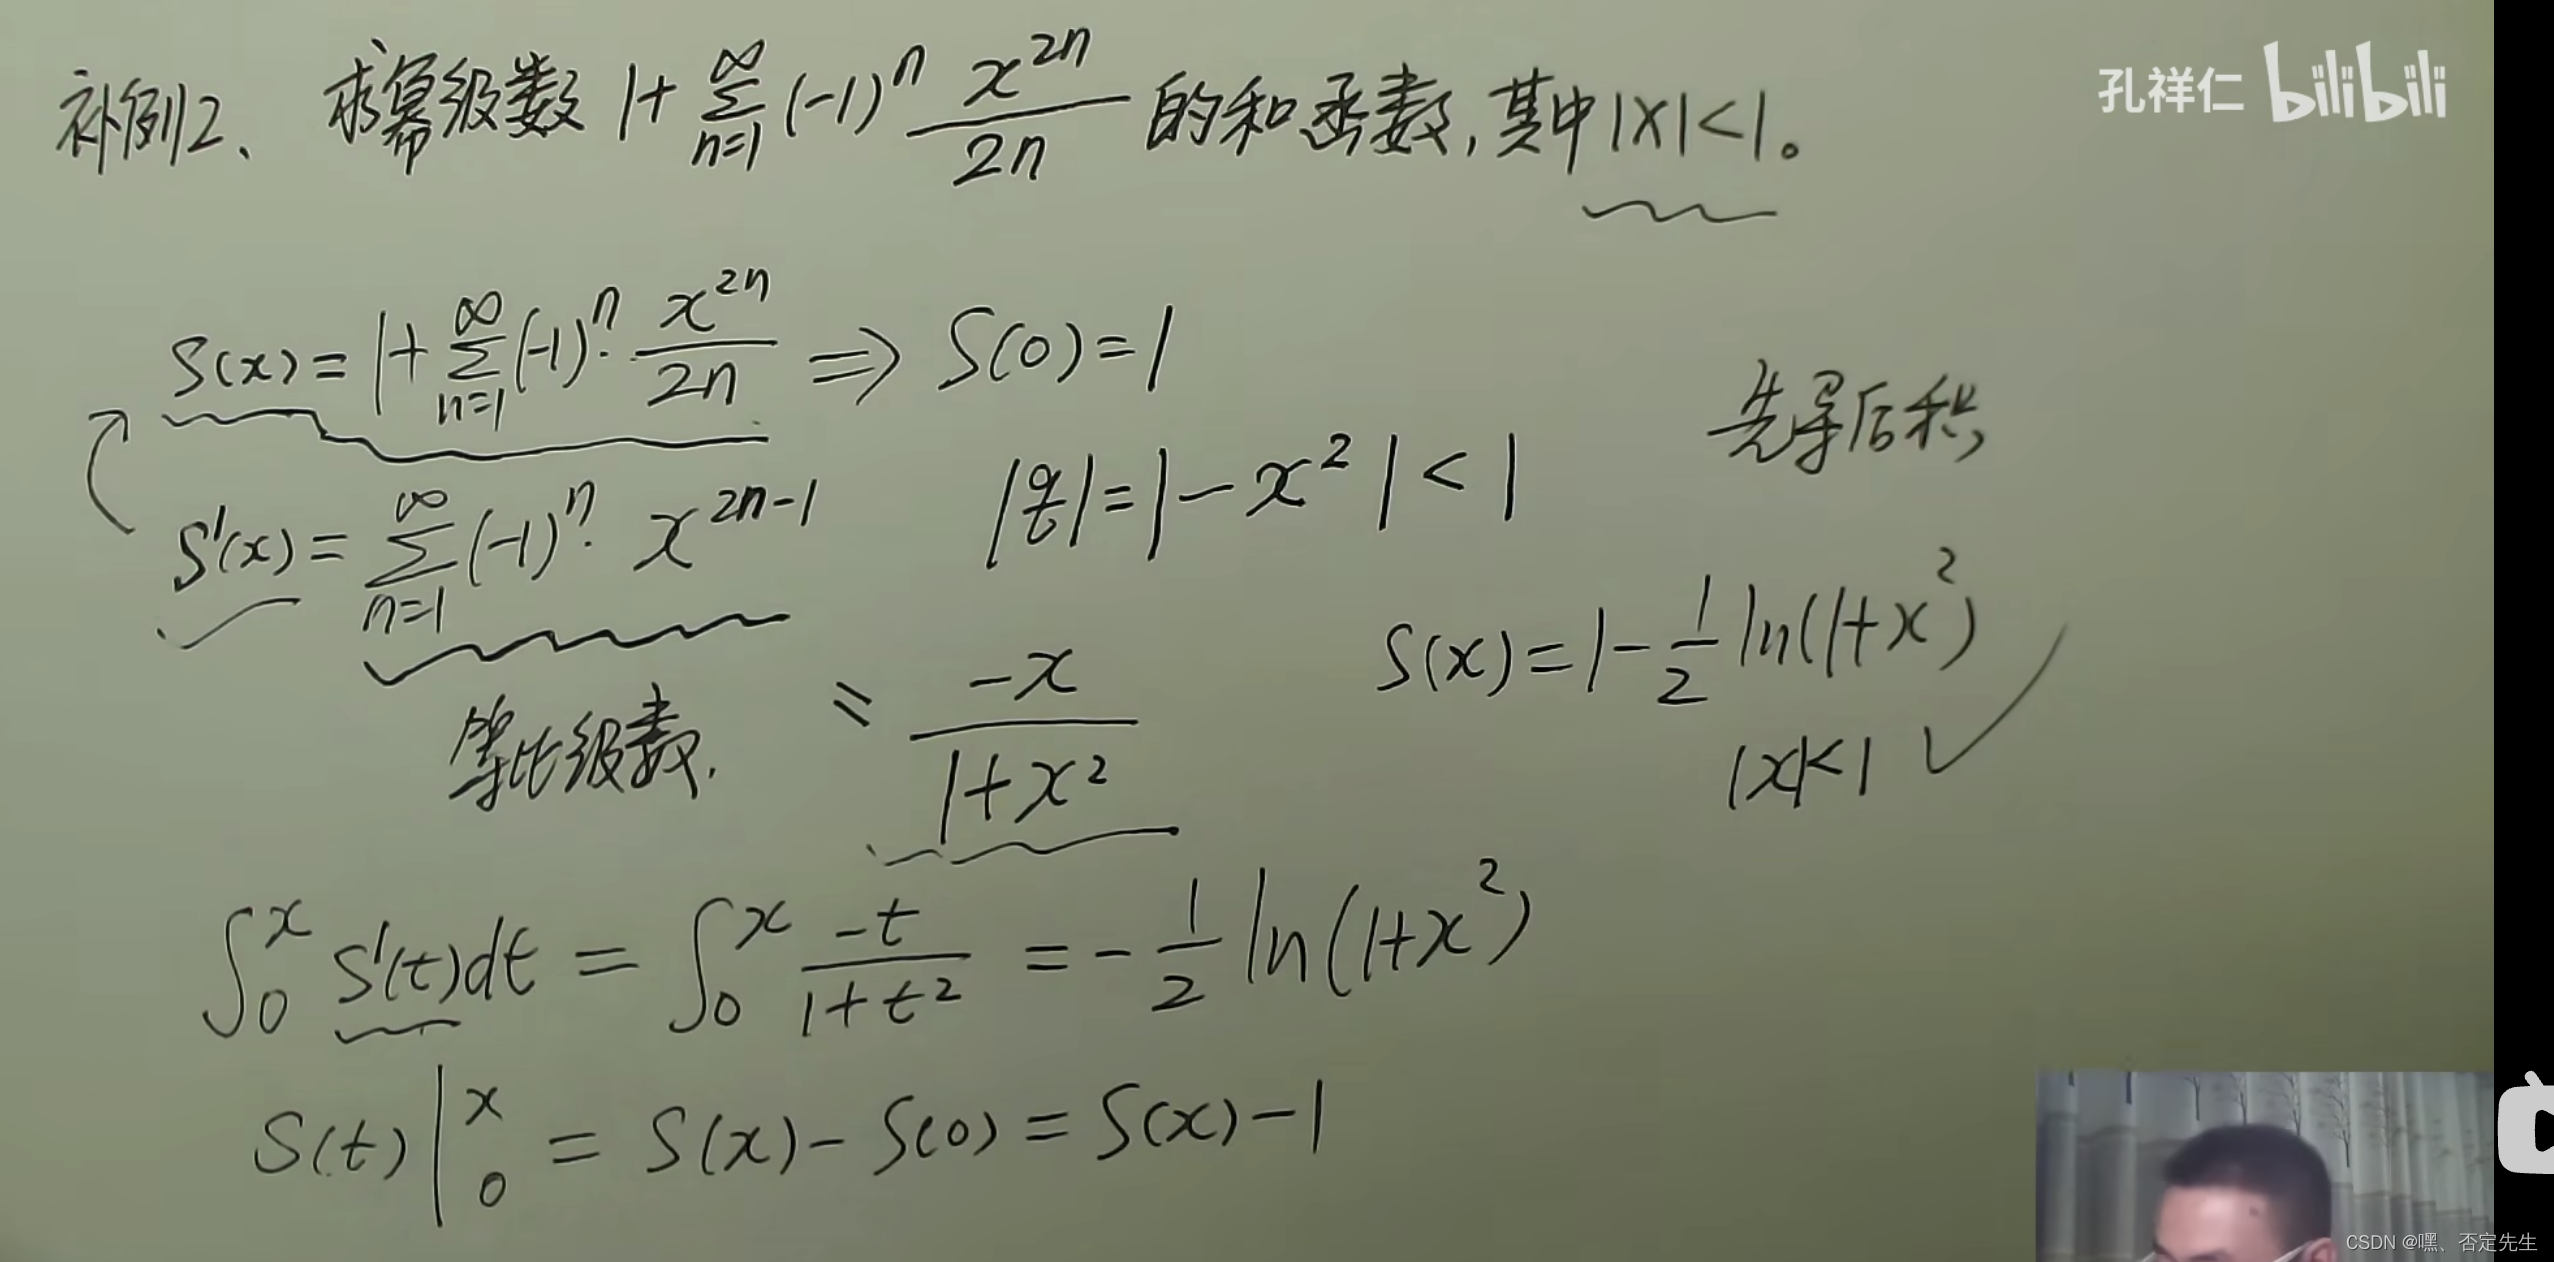 补例2、求幂级数 1+∑_{n=1}^{∞}(-1)^n x^{2n}/2n 的和函数,其中|x|<1。
孔祥仁 bilibili
S(x)=1+∑_{n=1}^{∞}(-1)^n·x^{2n}/2n ⇒ S(0)=1
先导后积
S'(x)=∑_{n=1}^{∞}(-1)^n·x^{2n-1}
|q|=|-x²|<1
等比级数.
= -x/(1+x²)
S(x)=1-1/2 ln(1+x²)
|x|<1 ✓
∫_0^x S'(t)dt = ∫_0^x -t/(1+t²) = -1/2 ln(1+x²)
S(t)|_0^x = S(x)-S(0)=S(x)-1
CSDN @嘿、否定先生